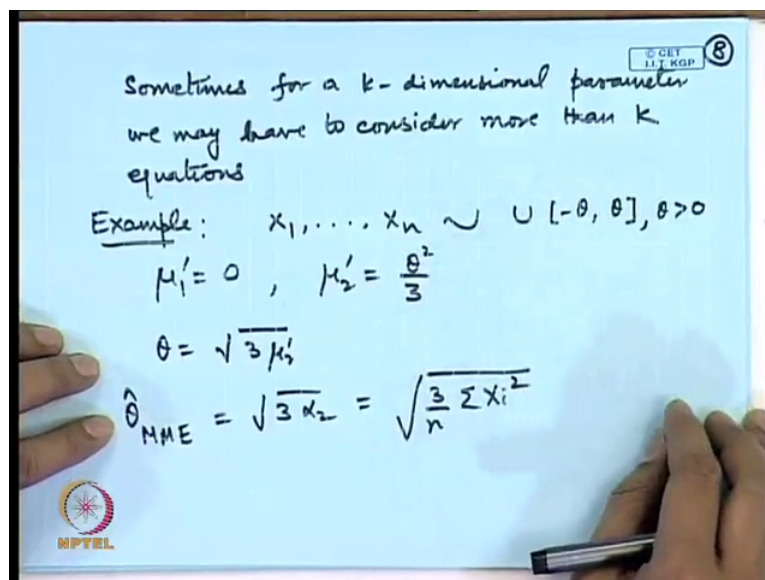 © CET
I.I.T. KGP
8
Sometimes for a k-dimensional parameter
we may have to consider more than k
equations
Example: X₁, ..., Xₙ ~ U [-θ, θ], θ>0
μ₁' = 0 , μ₂' = θ²/3
θ = √(3 μ₂')
θ̂_MME = √(3 α₂) = √(3/n Σ Xi²)
NPTEL